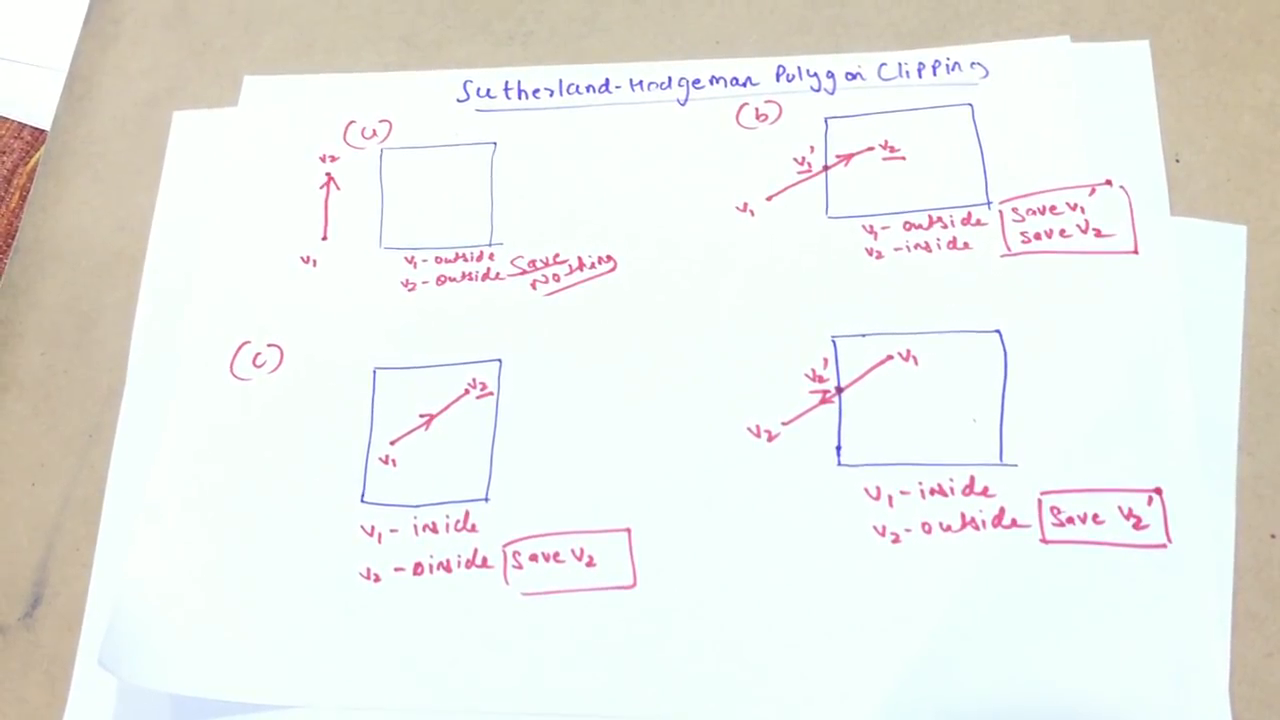 Sutherland-Hodgeman Polygon Clipping
(a)
v2
v1
v1-outside
v2-outside
Save
Nothing
(b)
v1'
v2
v1
v1-outside
v2-inside
Save v1'
Save v2
(c)
v2
v1
v1-inside
v2-inside
Save v2
v1
v2'
v2
v1-inside
v2-outside
Save v2'